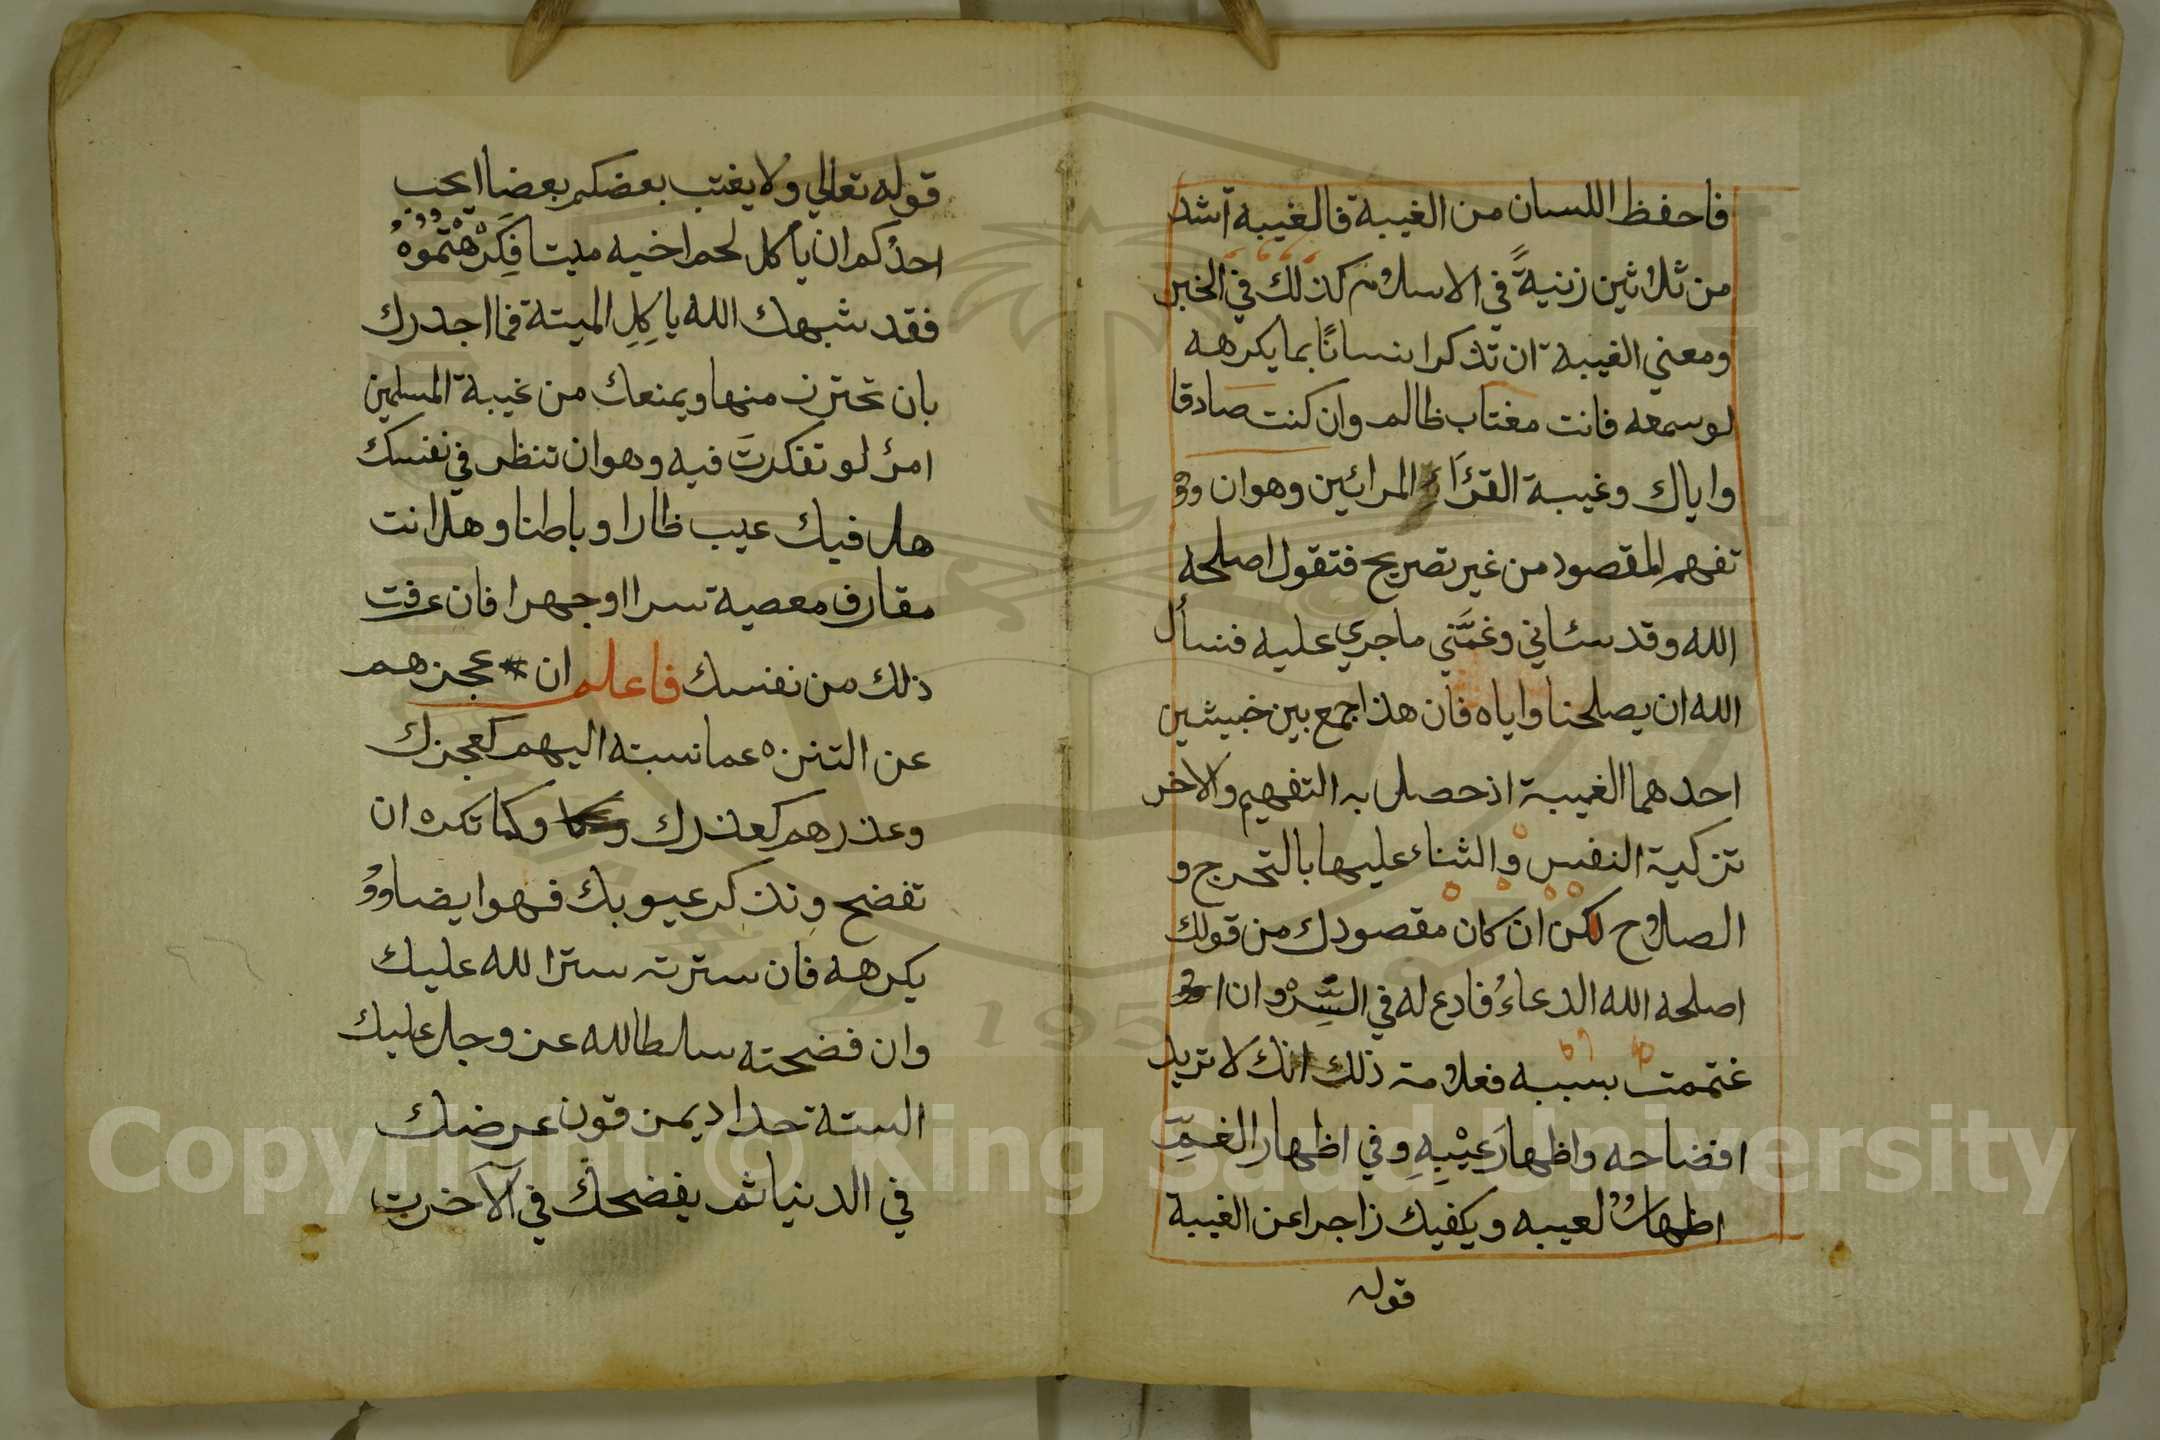 فاحفظ اللسان من الغيبة فالغيبه اشد
من ثلاثين زنيةً في الاسلام كذلك في الخبر
ومعني الغيبة ان تذكر انسانًا بما يكرهه
لو سمعه فانت مغتاب ظالم وان كنت صادقا
واياك وغيبة القرّاء المرائين وهو ان
تفهم المقصود من غير تصريح فتقول اصلحه
الله وقد سئاني وغمَّني ما جري عليه فنسأل
الله ان يصلحنا واياه فان هذا جمع بين خبيثين
احدهما الغيبة اذ حصل به التفهيم والاخر
تزكية النفس والثناء عليها بالتحرج و
الصلاح لكن ان كان مقصودك من قولك
اصلحه الله الدعاءُ فادع له في السِّرْ وان ا
غتممت بسببه فعلامة ذلك انك لا تريد
افضاحه واظهارَ عيْبِهِ وفي اظهار الغمّ
اظهارٌ لعيبه ويكفيك زاجرا عن الغيبة
قوله
قوله تعالي ولا يغتب بعضكم بعضا ايحب
احدُكم ان يأكل لحم اخيه ميتا فَكِرَهْتُموُهُ
فقد شبهك الله باكِلِ الميتة فما اجدرك
بان تحترز منها ويمنعك من غيبة المسلمين
امرٌ لو تفكرتَ فيه وهو ان تنظر في نفسك
هل فيك عيب ظارا وباطنا وهل انت
مقارف معصية سرا او جهرا فان عرفت
ذلك من نفسك فاعلم ان * عجزهم
عن التنزه عما نسبته اليهم كعجزك
وعذرهم كعذرك وكما تكره ان
تفضح وتذكر عيوبك فهو ايضا
يكرهه فان سترته ستر الله عليك
وان فضحته سلط الله عز وجل عليك
السنة حداد يمزقون عرضك
في الدنيا ثم يفضحك في الآخرت
Copyright © King Saud University
1957